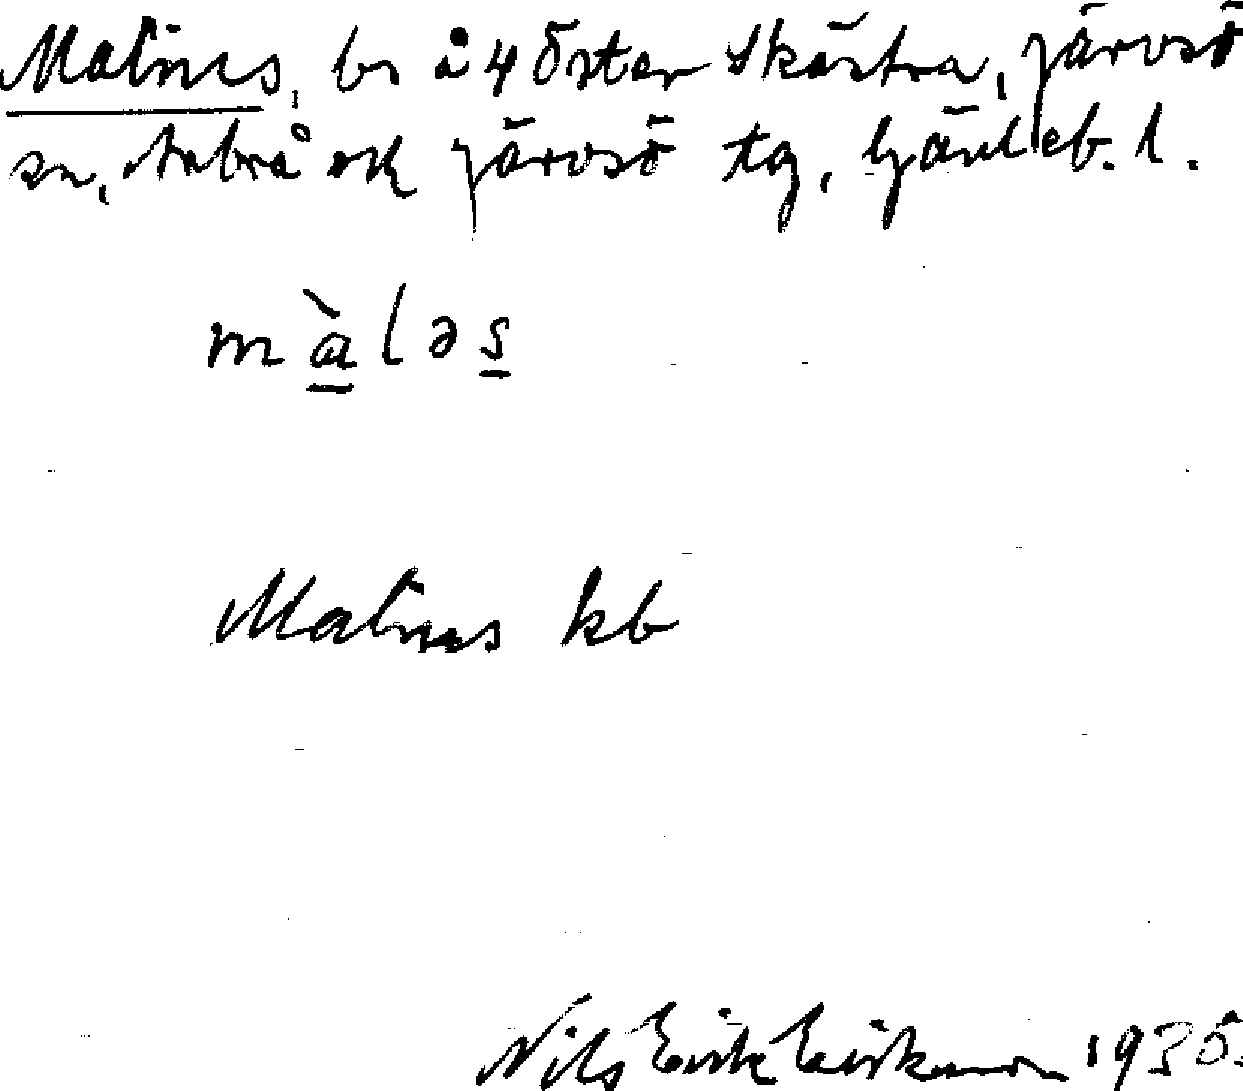 Malmes, bs å 4 Öster Skästra, Järvsö
sn, Arbrå ock Järvsö tg, Gävleb. l.
màləs
kb
Nils Erik Eriksson 1935.